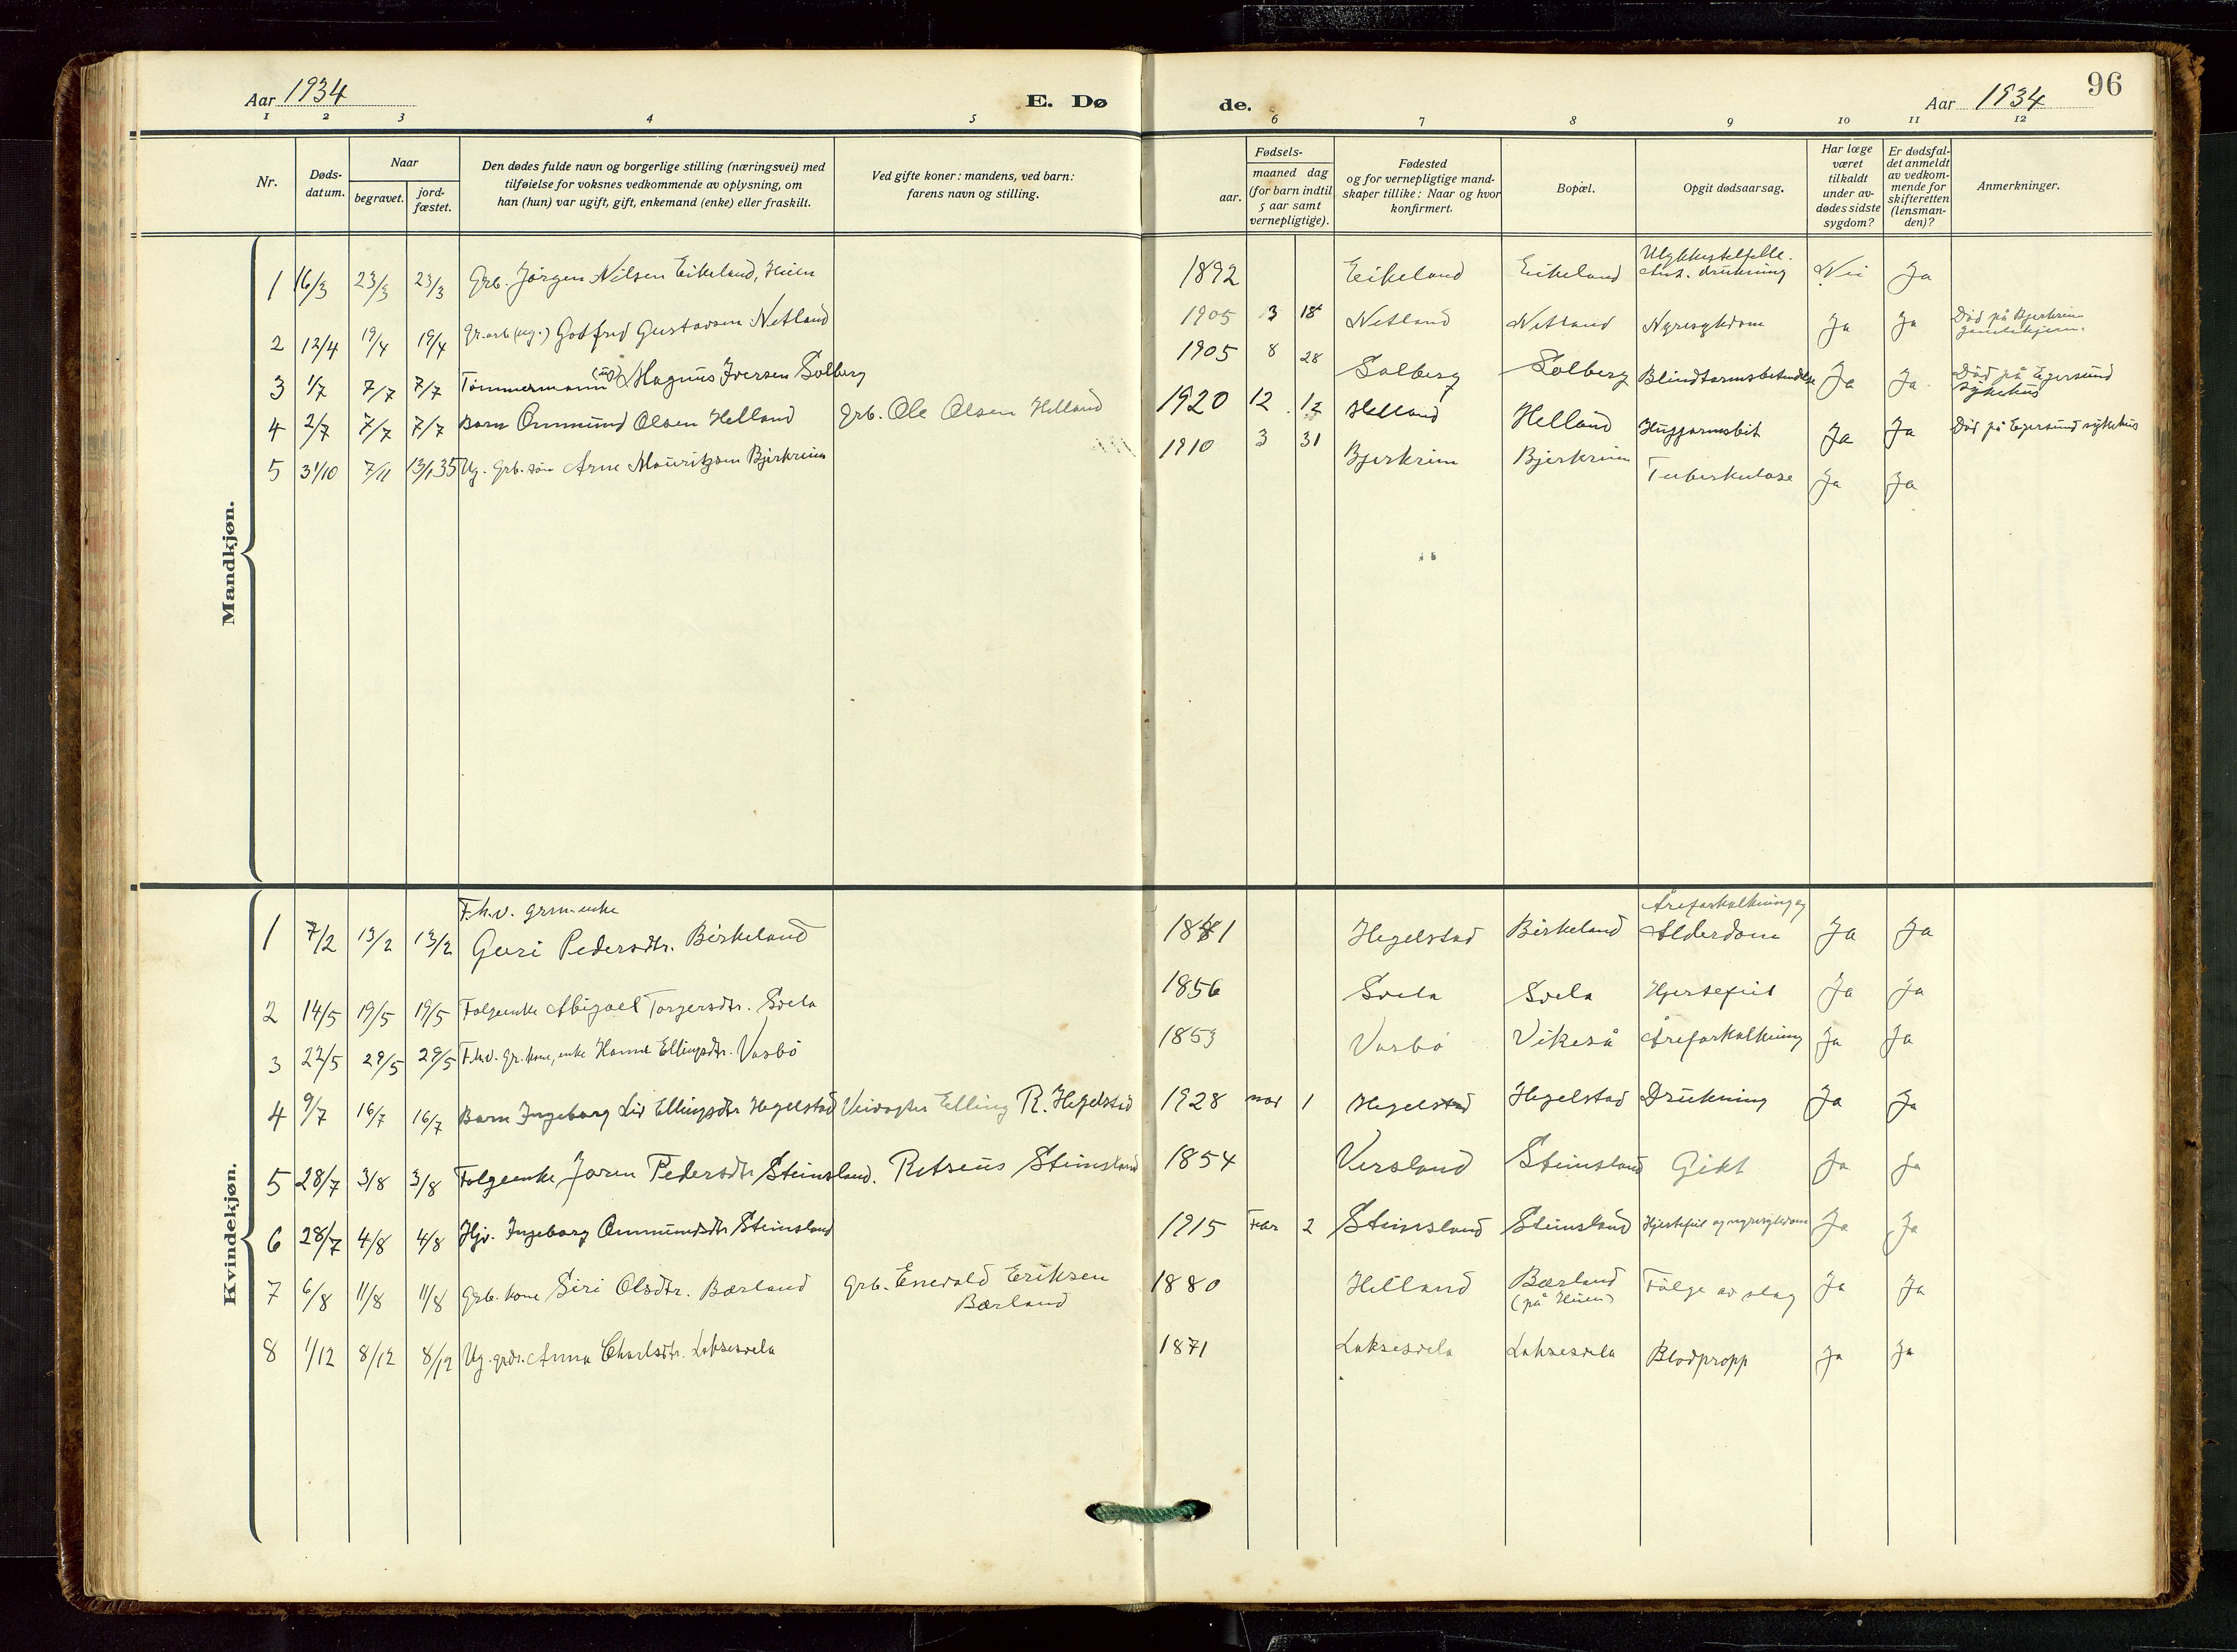 96
Aar 1934
E. Dø
de.
Aar 1934
1 2 3 4 5 6 7 8 9 10 11 12
Nr.
Døds-
datum.
Naar
begravet.
jord-
fæstet.
Den dødes fulde navn og borgerlige stilling (næringsvei) med
tilføielse for voksnes vedkommende av oplysning, om
han (hun) var ugift, gift, enkemand (enke) eller fraskilt.
Ved gifte koner: mandens, ved barn:
farens navn og stilling.
Fødsels-
aar.
maaned dag
(for barn indtil
5 aar samt
vernepligtige).
Fødested
og for vernepligtige mand-
skaper tillike: Naar og hvor
konfirmert.
Bopæl.
Opgit dødsaarsag.
Har læge
været
tilkaldt
under av-
dødes sidste
sygdom?
Er dødsfal-
det anmeldt
av vedkom-
mende for
skifteretten
(lensman-
den)?
Anmerkninger.
Mandkjøn.
1 16/3 23/3 23/3 Grb. Jørgen Nilsen Eikeland, 1892 Eikeland Eikeland drukning Nei Ja
2 12/4 19/4 19/4 Godfred Gustavsen Netland 1905 3 18 Netland Netland Nyresykdom Ja Ja Død på Bjerkreim
3 1/7 7/7 7/7 Tømmermann (ug) Magnus Iversen Solberg 1905 8 28 Solberg Solberg Blindtarmsbetendelse Ja Ja Død på Egersund
sykehus
4 2/7 7/7 7/7 Barn Ommund Olsen Helland Grb. Ole Olsen Helland 1920 12 12 Helland Helland Huggormsbit Ja Ja Død på Egersund sykehus
5 31/10 7/11 13/1 35 Ug. Grb. søn Arne Mauritzsen Bjerkreim 1910 3 31 Bjerkreim Bjerkreim Tuberkulose Ja Ja
Kvindekjøn.
F.h.v. grm. enke
Åreforkalkning og
1 7/2 13/2 13/2 Guri Pedersdtr. Birkeland 1841 Hegelstad Birkeland Alderdom Ja Ja
2 14/5 19/5 19/5 Folgeenke Abigael Torgersdtr. Svela 1856 Svela Svela Hjertefeil Ja Ja
3 22/5 29/5 29/5 F.h.v. gr. kone, enke Hanne Ellingsdtr. Vasbø 1853 Vasbø Vikeså Åreforkalkning Ja Ja
4 9/7 16/7 16/7 Barn Ingeborg Liv Ellingsdtr Hegelstad Veivogter Elling R. Hegelstad 1928 nov 1 Hegelstad Hegelstad Drukning Ja Ja
5 28/7 3/8 3/8 Folgeenke Joren Pedersdtr Steinsland. Retseius Steinsland 1854 Versland Steinsland Gikt Ja Ja
6 28/7 4/8 4/8 Hjv. Ingeborg Ommundsdtr Steinsland 1915 Febr 2 Steinsland Steinsland Hjertefeil og nyresykdom Ja Ja
7 6/8 11/8 11/8 Grb. kone Siri Olsdtr. Bærland Grb. Enevald Eriksen
Bærland 1880 Helland Bærland Følge av slag Ja Ja
8 1/12 8/12 8/12 Ug. grdr. Anna Charlsdtr. Laksesvela 1871 Laksesvela Laksesvela Blodpropp Ja Ja